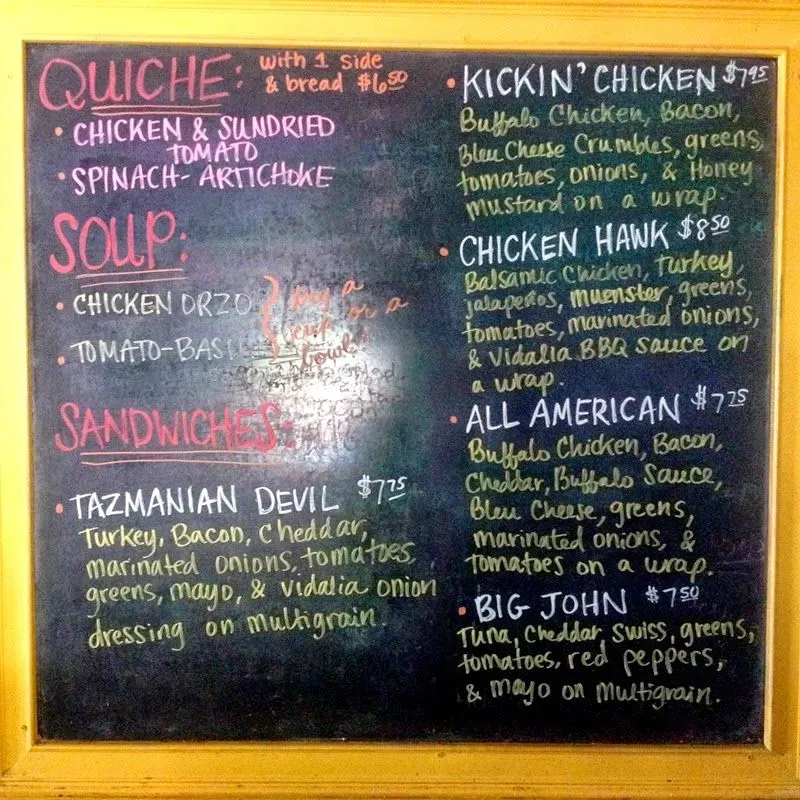 QUICHE: with 1 side
& bread $6.50
• CHICKEN & SUNDRIED
TOMATO
• SPINACH-ARTICHOKE
SOUP:
• CHICKEN ORZO
• TOMATO-BASIL
buy a
cup or a
bowl!
SANDWICHES:
• TAZMANIAN DEVIL $7.75
Turkey, Bacon, Cheddar,
marinated onions, tomatoes,
greens, mayo, & vidalia onion
dressing on multigrain.
• KICKIN' CHICKEN $7.95
Buffalo Chicken, Bacon,
Bleu Cheese Crumbles, greens,
tomatoes, onions, & Honey
mustard on a wrap.
• CHICKEN HAWK $8.50
Balsamic Chicken, Turkey,
jalapeños, muenster, greens,
tomatoes, marinated onions,
& Vidalia BBQ sauce on
a wrap.
• ALL AMERICAN $7.75
Buffalo Chicken, Bacon,
Cheddar, Buffalo Sauce,
Bleu Cheese, greens,
marinated onions, &
tomatoes on a wrap.
• BIG JOHN $7.50
Tuna, Cheddar, Swiss, greens,
tomatoes, red peppers,
& mayo on multigrain.